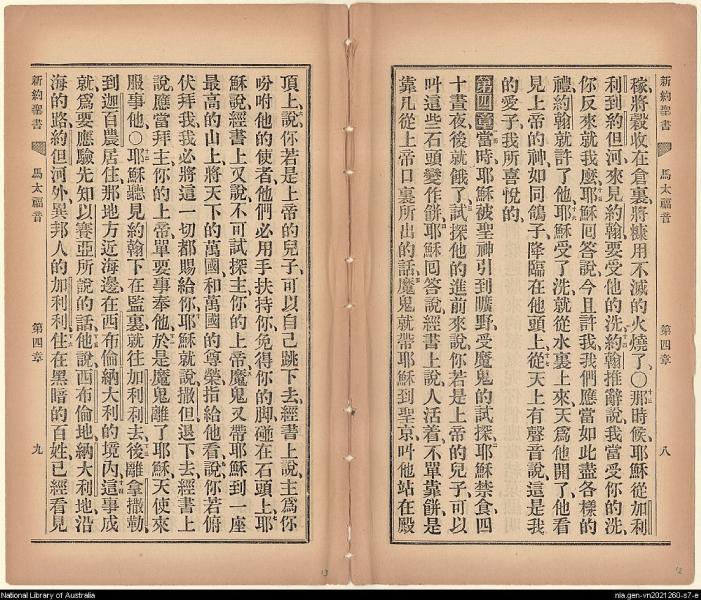 新約聖書 馬太福音 第四章 八
稼、將穀收在倉裏、將糠用不滅的火燒了、〇那時候、耶穌從加利
利到約但河來見約翰、要受他的洗、約翰推辭說、我當受你的洗、
你反來就我麼、耶穌囘答說、今且許我、我們應當如此盡各樣的
禮、約翰就許了他、耶穌受了洗、就從水裏上來、天爲他開了、他看
見上帝的神、如同鴿子降臨在他頭上、從天上有聲音說、這是我
的愛子、我所喜悅的、
第四章當時、耶穌被聖神引到曠野、受魔鬼的試探、耶穌禁食四
十晝夜、後就餓了、試探他的進前來說、你若是上帝的兒子、可以
叫這些石頭變作餅、耶穌囘答說、經書上說、人活着、不單靠餅、是
靠凡從上帝口裏所出的話、魔鬼就帶耶穌到聖京、叫他站在殿
頂上、說、你若是上帝的兒子、可以自己跳下去、經書上說、主爲你
吩咐他的使者、他們必用手扶持你、免得你的脚碰在石頭上、耶
穌說、經書上又說、不可試探主你的上帝、魔鬼又帶耶穌到一座
最高的山上、將天下的萬國、和萬國的尊榮、指給他看、說、你若俯
伏拜我、我必將這一切都賜給你、耶穌就說、撒但退下去、經書上
說、應當拜主你的上帝、單要事奉他、於是魔鬼離了耶穌、天使來
服事他、〇耶穌聽見約翰下在監裏、就往加利利去、後離拿撒勒、
到迦百農居住、那地方近海邊、在西布倫納大利的境內、這事成
就、爲要應驗先知以賽亞所說的話、他說、西布倫地、納大利地、沿
海的路、約但河外、異邦人的加利利、住在黑暗的百姓、已經看見
新約聖書 馬太福音 第四章 九
13
12
National Library of Australia
nla.gen-vn2021260-s7-e